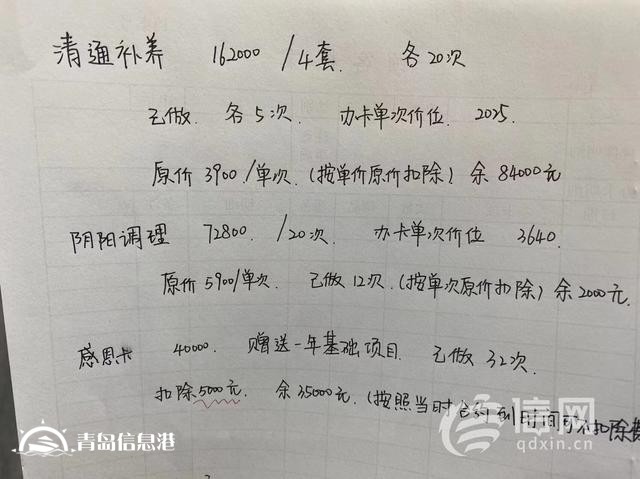 清通补养 162000 /4套. 各20次
已做. 各5次. 办卡单次价位. 2025.
原价 3900./单次.(按单价原价扣除) 余 84000元
阴阳调理 72800. /20次. 办卡单次价位 3640.
原价 5900/单次. 已做12次.(按单次原价扣除) 余2000元.
感恩卡 40000. 赠送一年基础项目. 已做 32次.
扣除5000元. 余 35000元.(按照当时 时间可不扣除
青岛信息港
信网
qdxin.cn